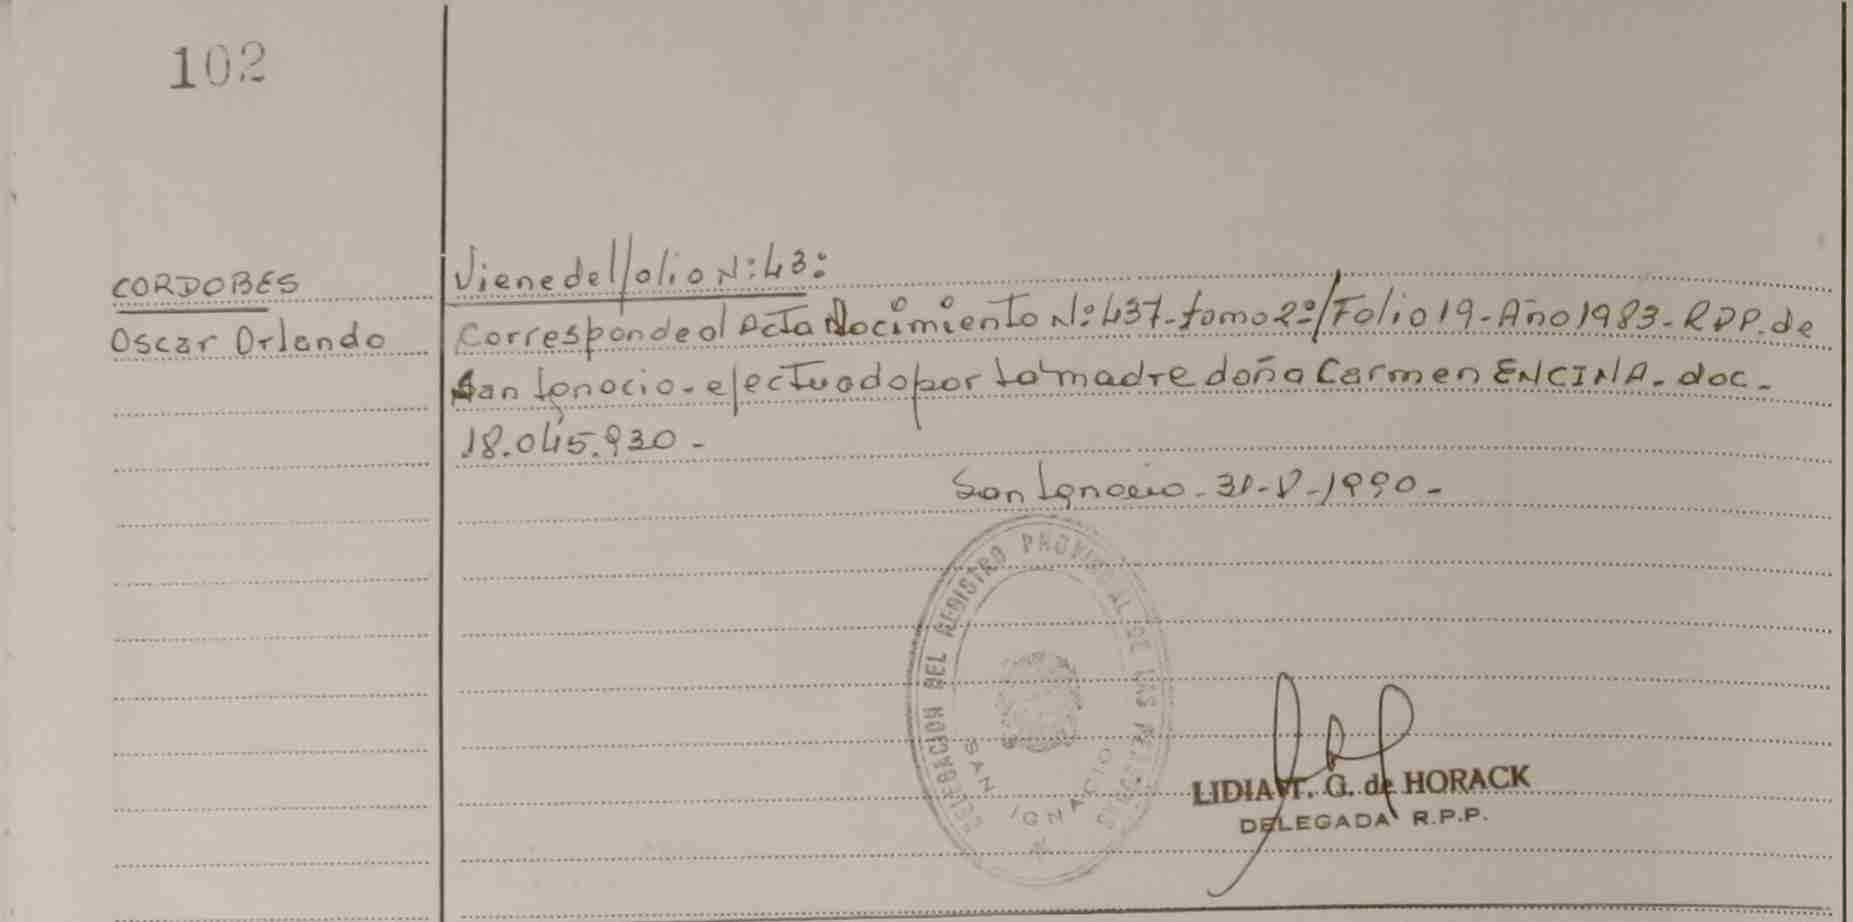 102
CORDOBES
Oscar Orlando
Viene del folio N: 43:
Corresponde al Acta Nacimiento Nº 437- tomo 2º/Folio 19- Año 1983- RPP. de
San Ignacio- efectuado por la madre doña Carmen ENCINA. doc.
18.045.930-
San Ignacio- 31-V-1990-
DELEGACION DEL REGISTRO PROVINCIAL DE LAS PERSONAS
SAN IGNACIO
LIDIA T. G. de HORACK
DELEGADA R.P.P.